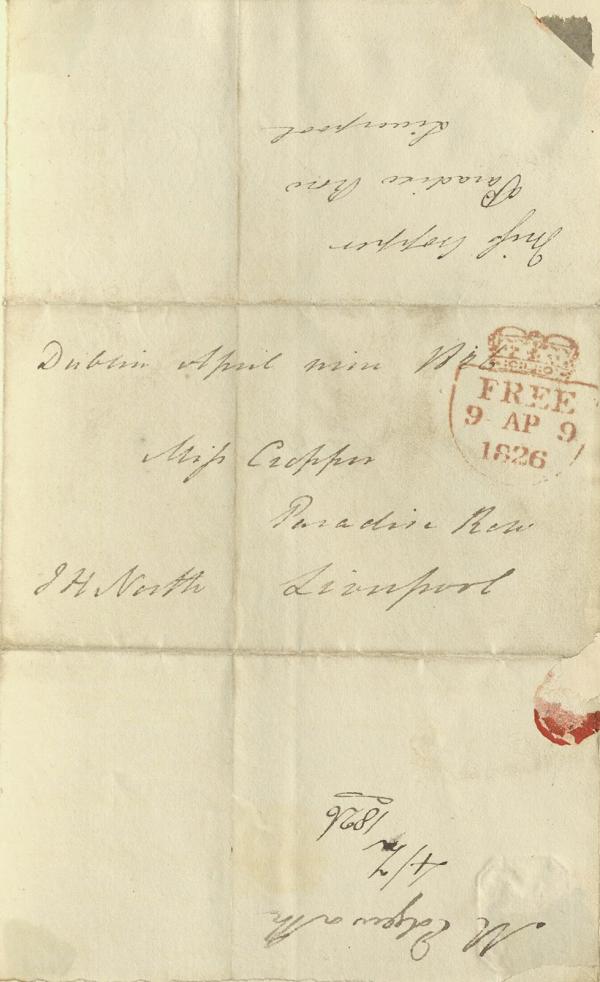 Miss Cropper
Paradise Row
Liverpool
Dublin April nine 1826
FREE
9 AP 9
1826
Miss Cropper
Paradise Row
J H North
Liverpool
M Edgeworth
4/7
1826